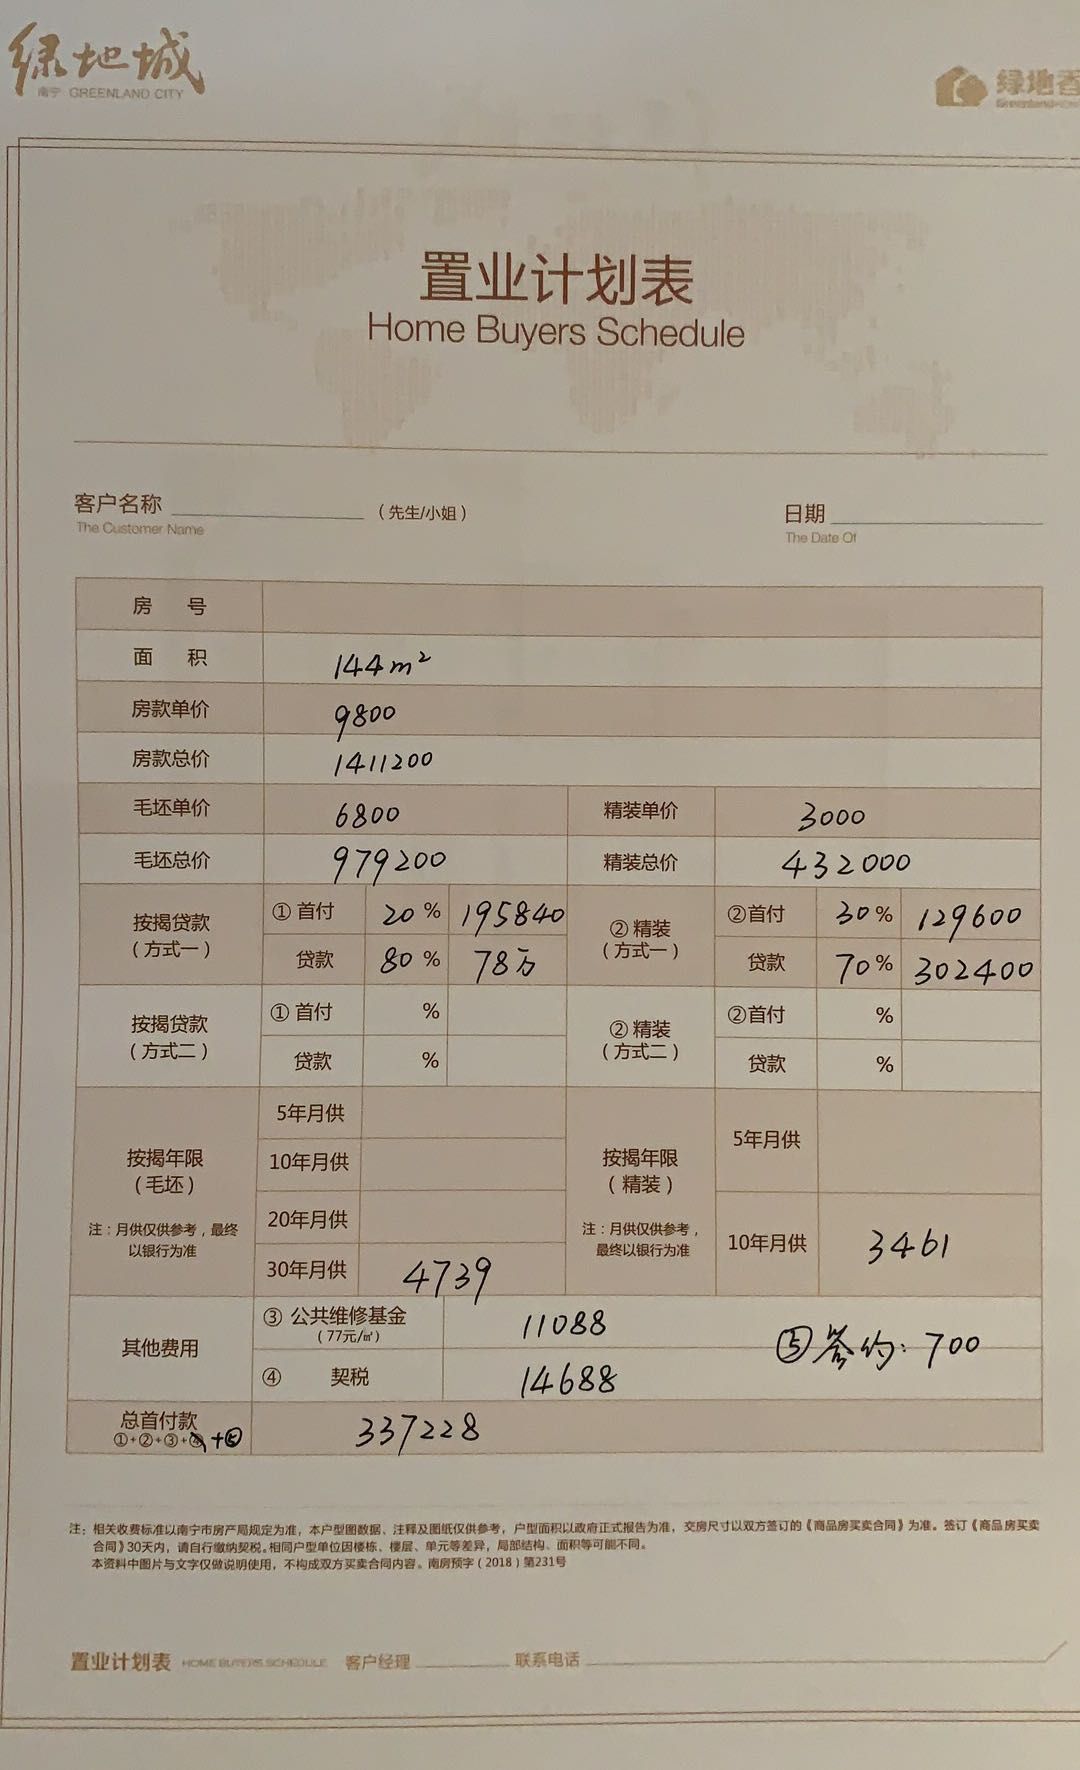 绿地城
南宁 GREENLAND CITY
绿地香
Greenland
置业计划表
Home Buyers Schedule
客户名称 (先生/小姐) 日期
The Customer Name The Date Of
房 号
面 积 144m²
房款单价 9800
房款总价 1411200
毛坯单价 6800 精装单价 3000
毛坯总价 979200 精装总价 432000
按揭贷款 (方式一) ①首付 20% 195840 ②精装 (方式一) ②首付 30% 129600
贷款 80% 78万 贷款 70% 302400
按揭贷款 (方式二) ①首付 % ②精装 (方式二) ②首付 %
贷款 % 贷款 %
按揭年限 (毛坯) 5年月供 按揭年限 (精装) 5年月供
10年月供
注：月供仅供参考，最终以银行为准 20年月供 注：月供仅供参考，最终以银行为准 10年月供 3461
30年月供 4739
其他费用 ③ 公共维修基金 (77元/㎡) 11088 ⑤签约：700
④ 契税 14688
总首付款 ①+②+③+④+⑤ 337228
注：相关收费标准以南宁市房产局规定为准，本户型图数据、注释及图纸仅供参考，户型面积以政府正式报告为准，交房尺寸以双方签订的《商品房买卖合同》为准。签订《商品房买卖
合同》30天内，请自行缴纳契税。相同户型单位因楼栋、楼层、单元等差异，局部结构、面积等可能不同。
本资料中图片与文字仅做说明使用，不构成双方买卖合同内容。南房预字（2018）第231号
置业计划表 HOME BUYERS SCHEDULE 客户经理 联系电话